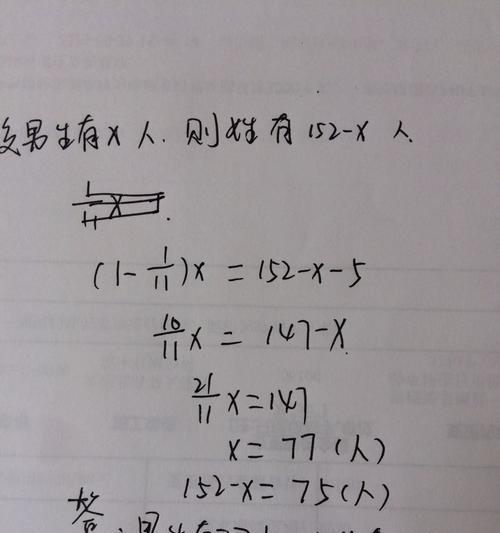 设男生有x人.则女生有152-x人.
(1-1/11)x=152-x-5
10/11x=147-x
21/11x=147
x=77(人)
152-x=75(人)
答:男生有77人